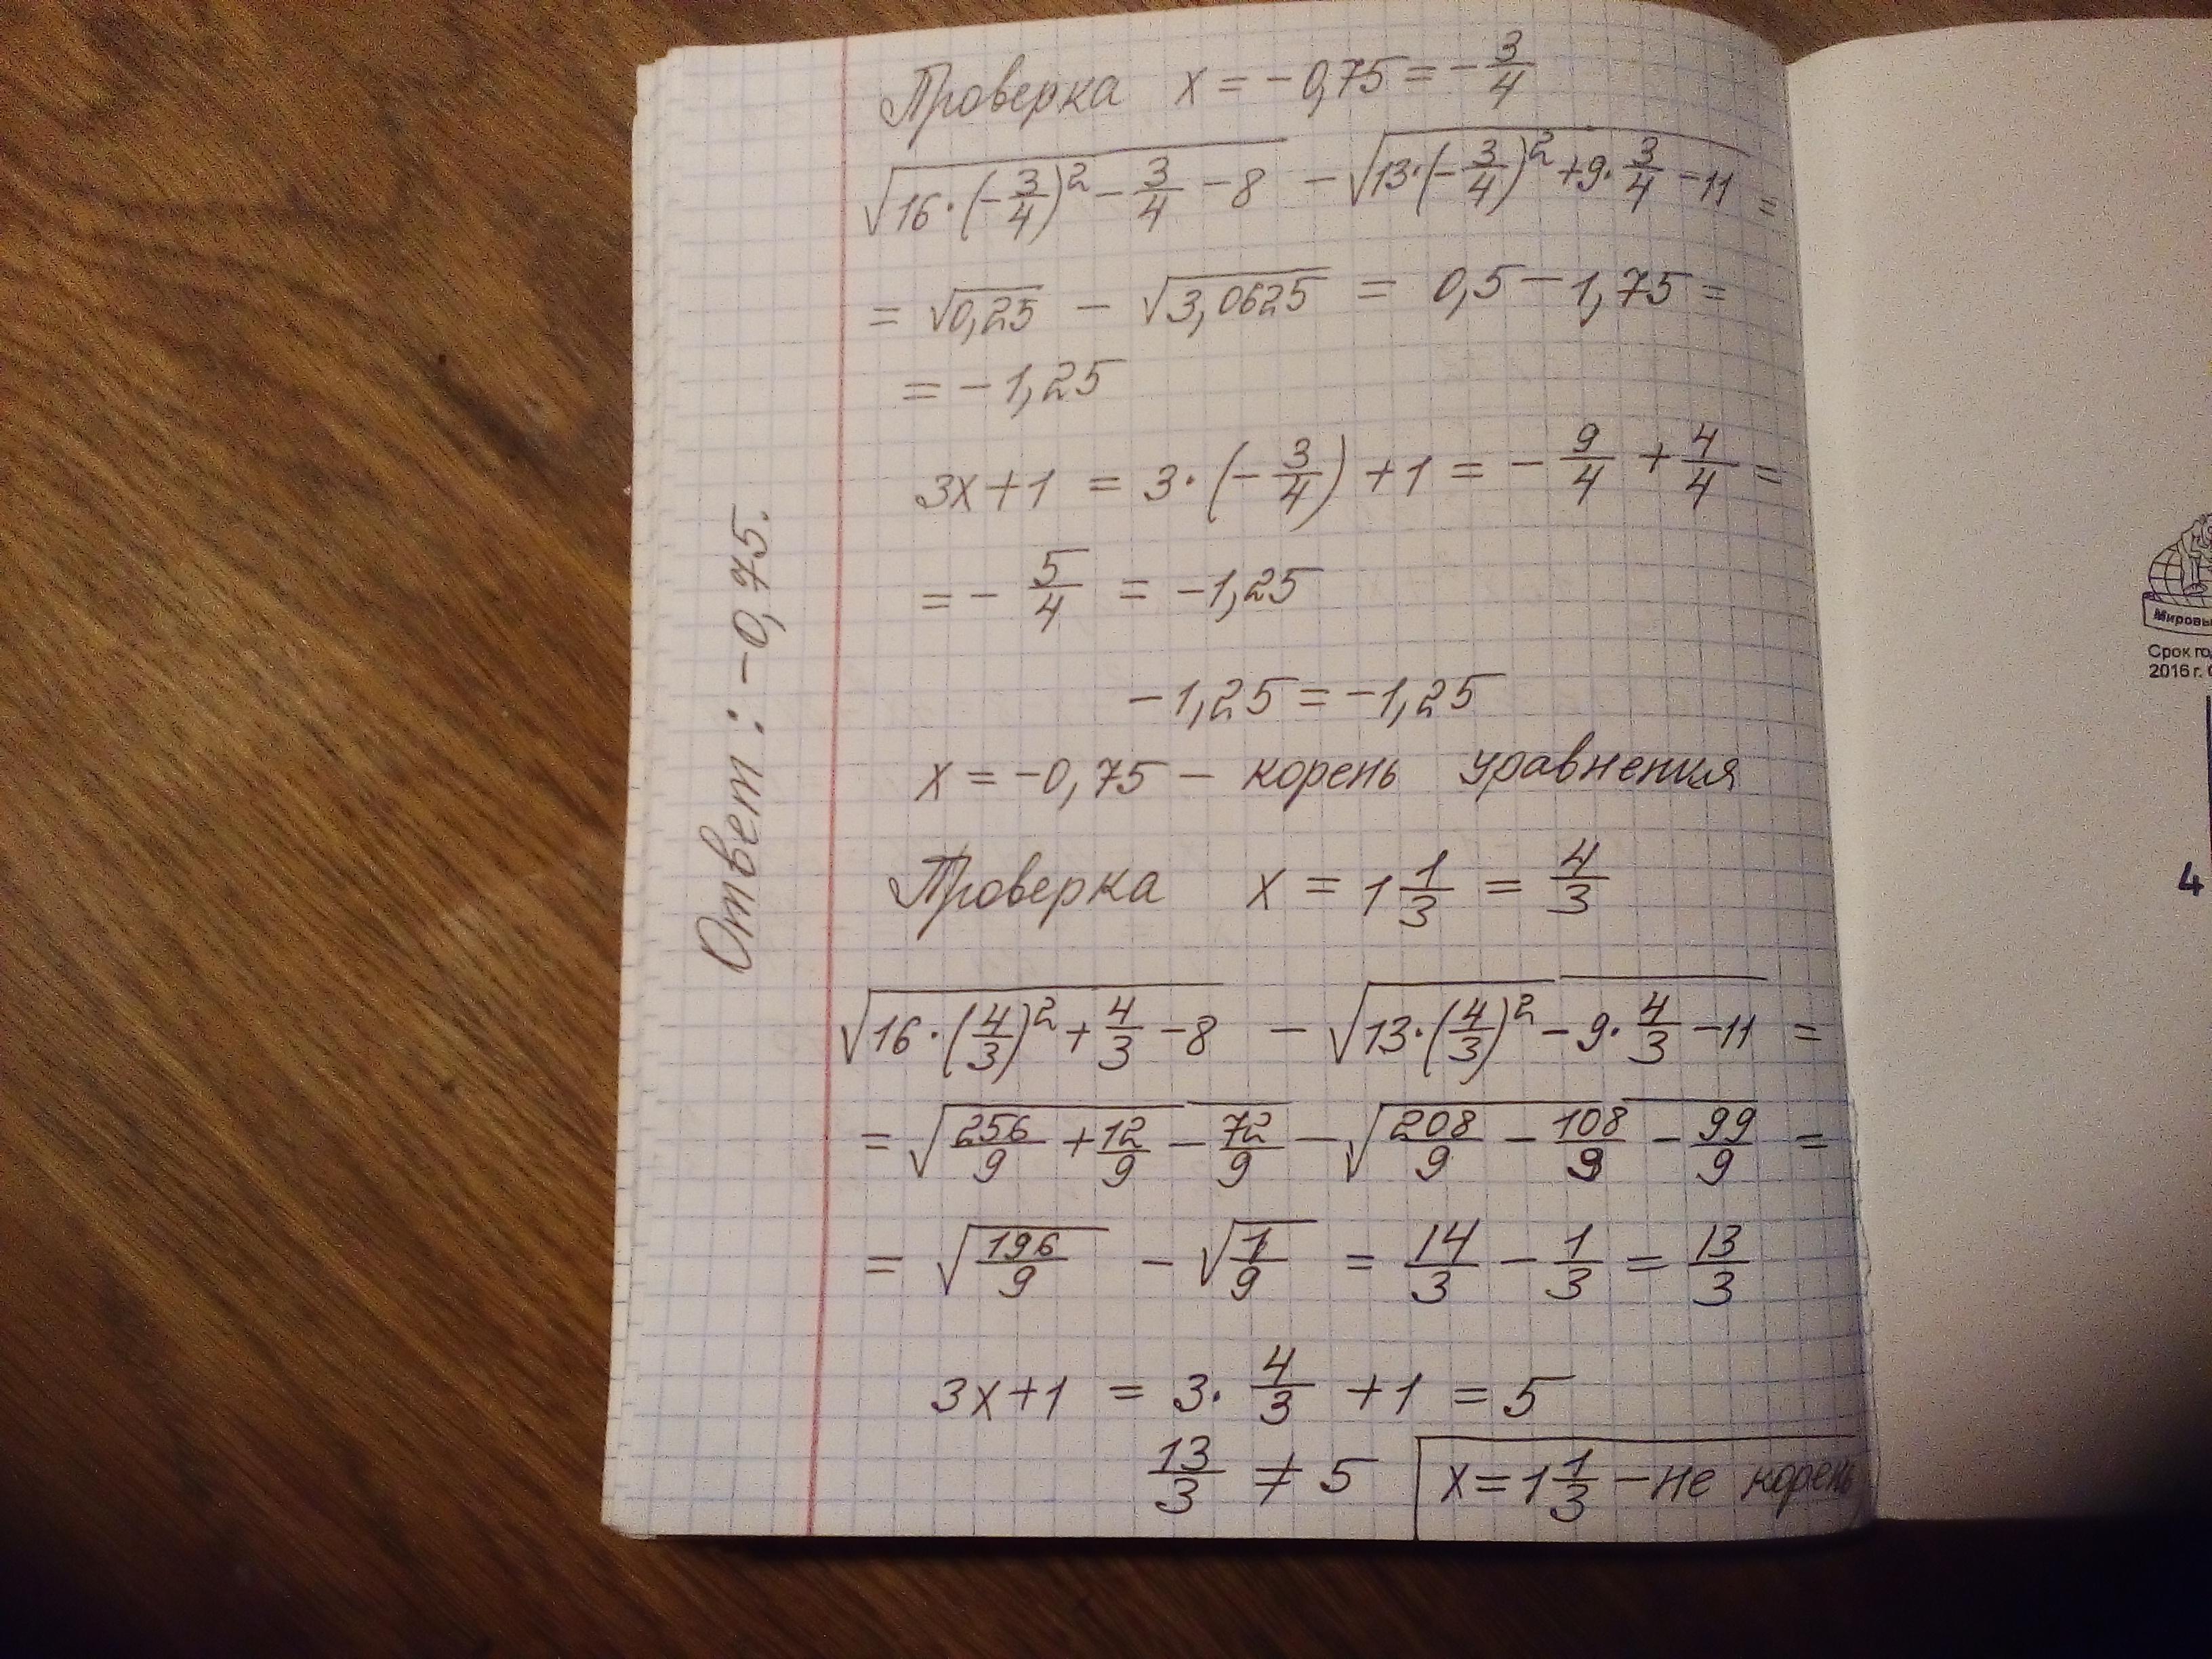 Проверка x = -0,75 = -3/4
√(16·(-3/4)² - 3/4 - 8) - √(13·(-3/4)² + 9·3/4 - 11) =
= √0,25 - √3,0625 = 0,5 - 1,75 =
= -1,25
3x+1 = 3·(-3/4) + 1 = -9/4 + 4/4 =
= -5/4 = -1,25
-1,25 = -1,25
x = -0,75 - корень уравнения
Проверка x = 1 1/3 = 4/3
√(16·(4/3)² + 4/3 - 8) - √(13·(4/3)² - 9·4/3 - 11) =
= √(256/9 + 12/9 - 72/9) - √(208/9 - 108/9 - 99/9) =
= √(196/9) - √(1/9) = 14/3 - 1/3 = 13/3
3x+1 = 3·4/3 + 1 = 5
13/3 ≠ 5 x = 1 1/3 - не корень
Ответ: -0,75.
Срок
2016 г.
4